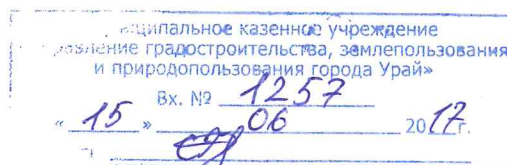 казенное учреждение
градостроительства, землепользования
и природопользования города Урай»
Вх. № 1257
« 15 » 06 2017г.